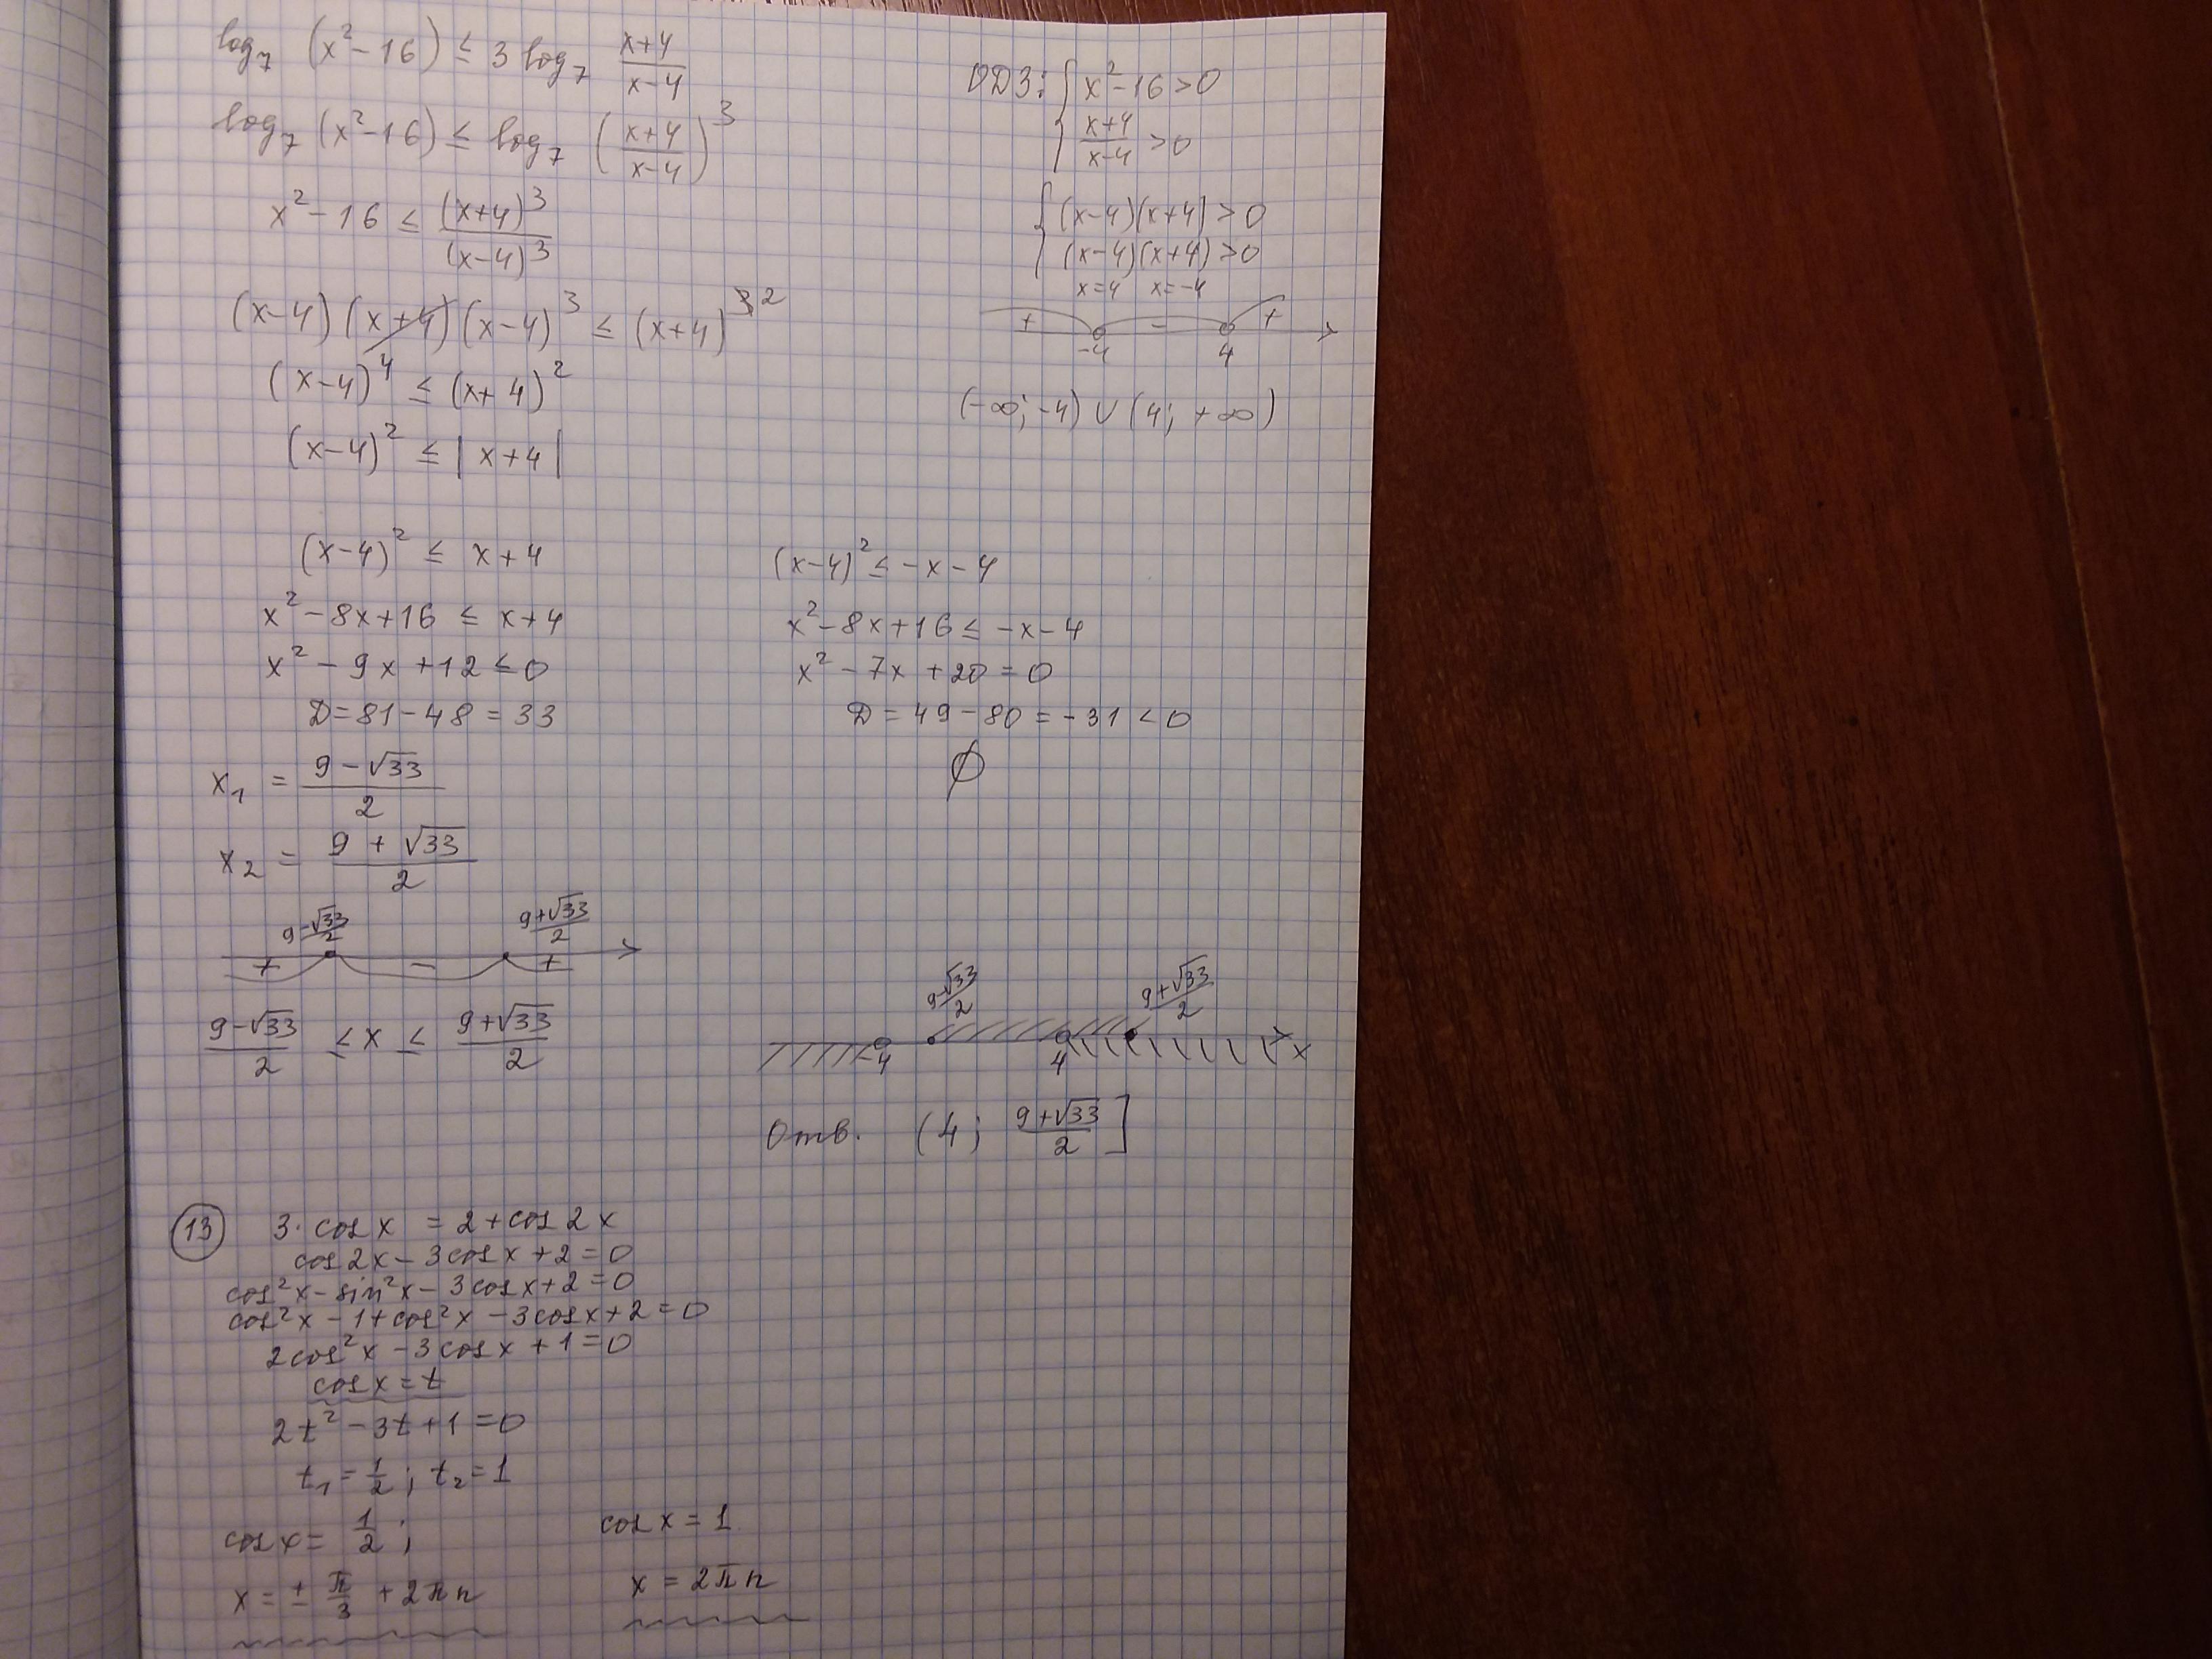 log₇ (x² - 16) ≤ 3 log₇ (x+4)/(x-4)
log₇ (x² - 16) ≤ log₇ ((x+4)/(x-4))³
x² - 16 ≤ (x+4)³/(x-4)³
(x-4)(x+4)(x-4)³ ≤ (x+4)³ ²
(x-4)⁴ ≤ (x+4)²
(x-4)² ≤ |x+4|
ОДЗ: { x² - 16 > 0
(x+4)/(x-4) > 0
{ (x-4)(x+4) > 0
(x-4)(x+4) > 0
x=4 x=-4
+ - +
-4 4
(-∞; -4) ∪ (4; +∞)
(x-4)² ≤ x+4
x² - 8x + 16 ≤ x+4
x² - 9x + 12 ≤ 0
D = 81 - 48 = 33
x₁ = (9 - √33)/2
x₂ = (9 + √33)/2
(9-√33)/2 (9+√33)/2
+ - +
(9-√33)/2 ≤ x ≤ (9+√33)/2
(x-4)² ≤ -x - 4
x² - 8x + 16 ≤ -x - 4
x² - 7x + 20 = 0
D = 49 - 80 = -31 < 0
∅
(9-√33)/2 (9+√33)/2
-4 4 x
Отв. (4; (9+√33)/2]
13 3·cos x = 2 + cos 2x
cos 2x - 3cos x + 2 = 0
cos²x - sin²x - 3cos x + 2 = 0
cos²x - 1 + cos²x - 3cos x + 2 = 0
2cos²x - 3cos x + 1 = 0
cos x = t
2t² - 3t + 1 = 0
t₁ = 1/2; t₂ = 1
cos x = 1/2; cos x = 1
x = ± π/3 + 2πn x = 2πn